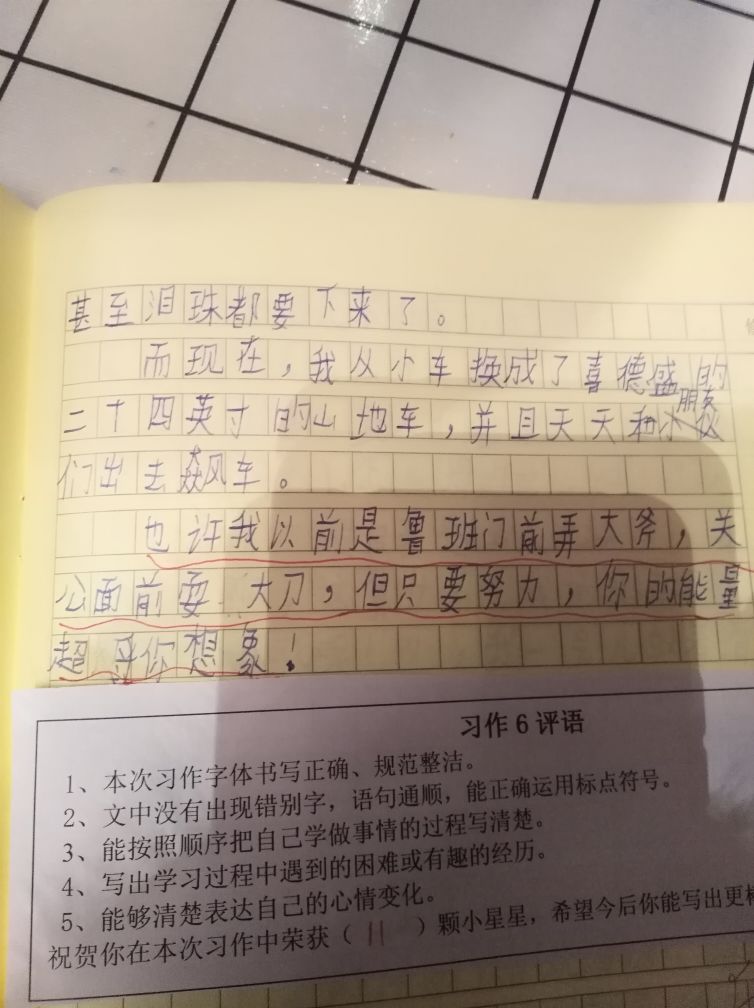 甚至泪珠都要下来了。
而现在，我从小车换成了喜德盛的
二十四英寸的山地车，并且天天和小朋友
们出去飙风车。
也许我以前是鲁班门前弄大斧，关
公面前耍大刀，但只要努力，你的能量
超乎你想象！
习作6评语
1、本次习作字体书写正确、规范整洁。
2、文中没有出现错别字，语句通顺，能正确运用标点符号。
3、能按照顺序把自己学做事情的过程写清楚。
4、写出学习过程中遇到的困难或有趣的经历。
5、能够清楚表达自己的心情变化。
祝贺你在本次习作中荣获（11）颗小星星，希望今后你能写出更